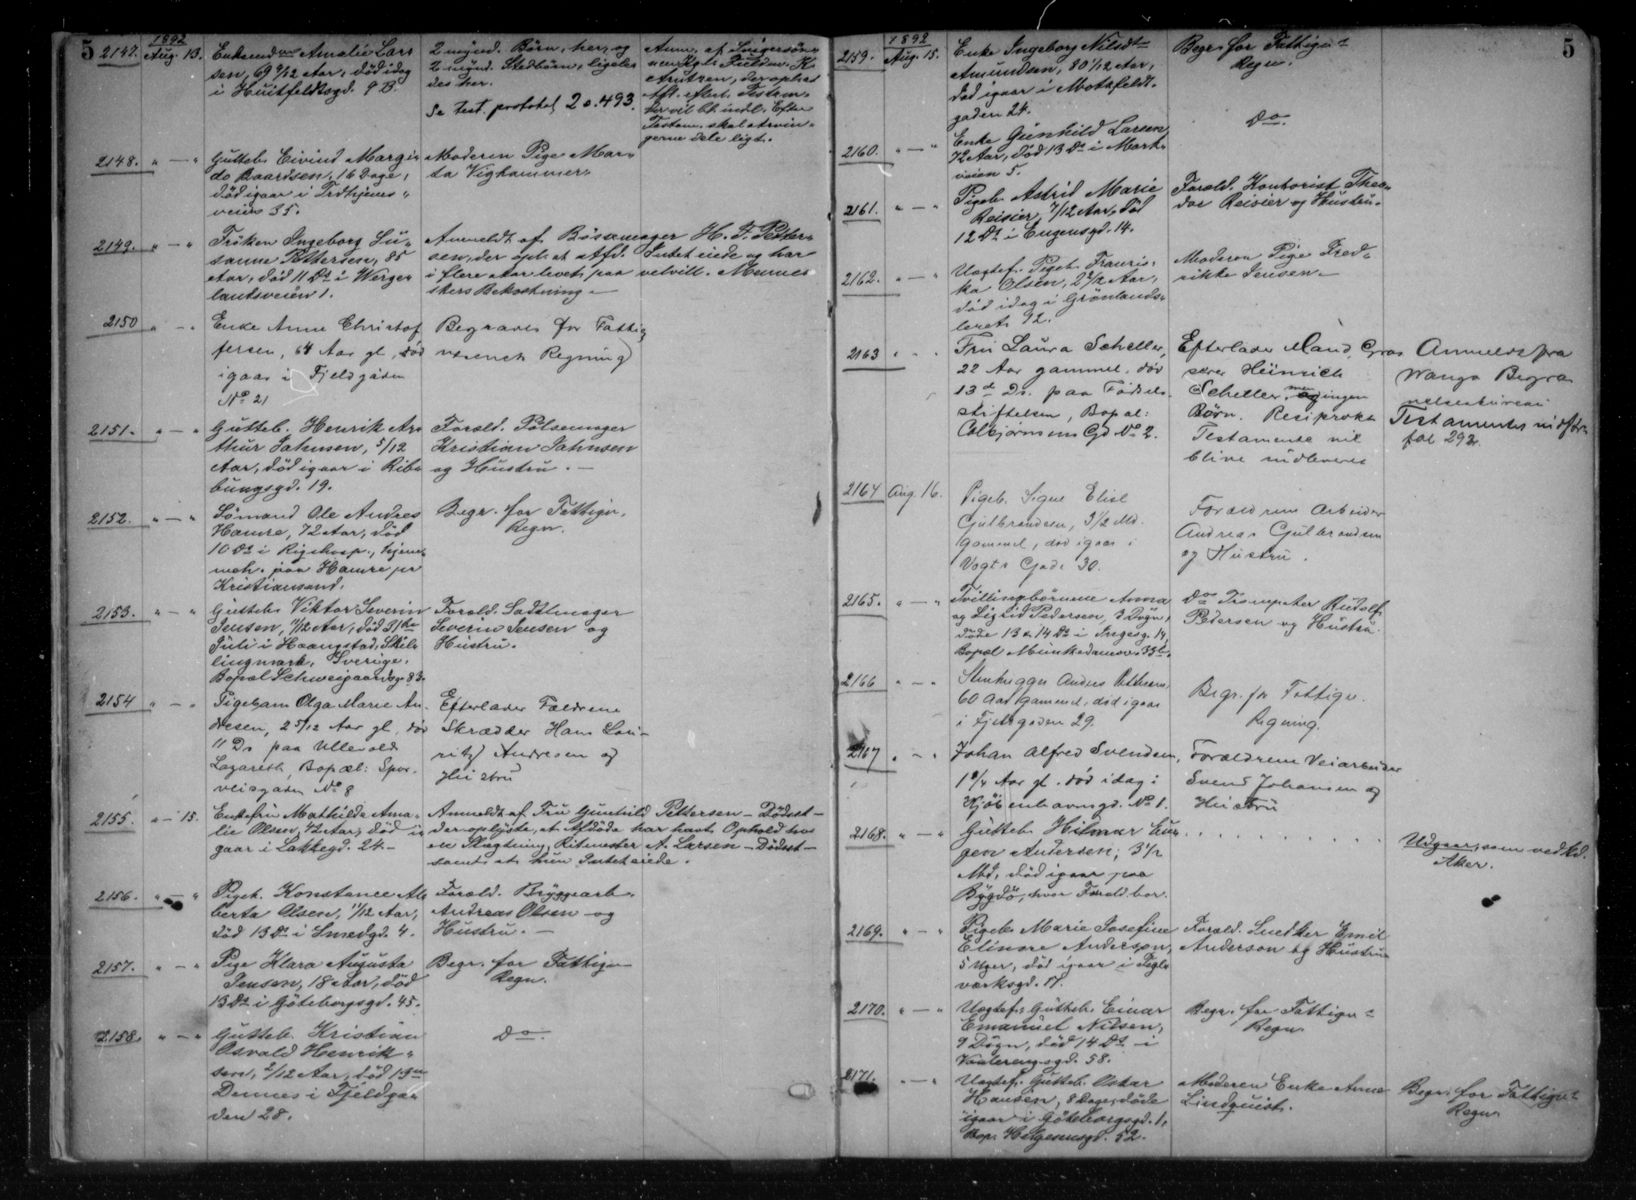 5
1892
2147. Aug. 13.
Amalie Lar
sen, 69 9/12 Aar, död idag
i Huitfeldtsgd. 9 B.
2 mynd. Börn, her, og
2 mynd. Stedbörn, ligele
des her.
Se test. protokol 2 o. 493.
Anm. af
Testam.
skal arvin-
gerne dele ligt.
2148. " — "
Gutteb. Eivind Margi
do Baardsen, 16 Dage,
död igaar i Trdhjems-
veien 35.
Moderen Pige Mar-
ta Vighammer
2149. " — "
Fröken Ingeborg Su-
sanne Pettersen, 85
Aar, död 11 Ds i Werge
landsveien 1.
Anmeldt af Bössemager H. F. Petter-
sen, der opl. at Afd. Intet eiede og har
i flere Aar levet paa velvill. Mennes
kers Bekostning.
2150 " — "
Enke Anne Christof
fersen, 64 Aar gl, död
igaar i Fjeldgaden
No 21
Begraves for Fattig
væsenets Regning
2151. " — "
Gutteb. Henrik Ar
thur Jahnsen, 5/12
Aar, död igaar i Ribs
bungsgd. 19.
Foræld. Pölsemager
Kristian Jahnsen
og Hustru. —
2152. " — "
Sömand Ole Andres
Hamre, 72 Aar, död
10 Ds i Rigshosp., hjem-
meh. paa Hamre pr
Kristiansand.
Begr. for Fattigv.
Regn.
2153. " — "
Gutteb. Viktor Severin
Jensen, 7/12 Aar, död 31te
Juli i Haangstad, Skil-
lingmark, Sverige.
Bopæl Schweigaardsgd. 83.
Foræld. Sadelmager
Severin Jensen og
Hustru.
2154 " — "
Pigebarn Olga Marie An-
dresen, 2 5/12 Aar gl, död
11 Ds paa Ullevold
Lazareth, Bopæl: Spor-
veisgaden No 8
Efterlader Fældrene
Skrædder Hans Lau-
ritz Andresen og
Hustru
2155. " — 15.
Enkefru Mathilde Ama-
lie Olsen, 42 Aar, död i
gaar i Lakkegd. 24. —
Anmeldt af Fru Gunhild Pettersen — Dödsst —
der oplyste, at Afdöde har havt Ophold hos
en Slægtning, Ritmester A. Larsen — Dödsst —
samt at hun Intet eiede.
2156. " — "
Pigeb. Konstance Al
berta Olsen, 11/12 Aar,
död 13 Ds i Smedgd. 4.
Foræld. Bryggearb.
Andreas Olsen og
Hustru. —
2157. " — "
Pige Klara Augusta
Jensen, 18 Aar, död
13 Ds i Göteborgsgd. 45.
Begr. for Fattigv
Regn.
2158. " — "
Gutteb. Kristian
Osvald Henrik-
sen, 2/12 Aar, död 13de
Dennes i Fjeldga-
den 28.
Do.
5
1892
2159. Aug. 15.
Enke Ingeborg Nilsdt
Amundsen, 80 1/12 Aar,
död igaar i Motzfeldt-
gaden 24.
Begr. for Fattigv
Regn.
2160. " — "
Enke Gunhild Larsen
72 Aar, död 13 Ds i Mark-
veien 5.
Do.
2161. " — "
Pigeb. Astrid Marie
Reisier, 7/12 Aar, död
12 Ds i Eugensgd. 14.
Foræld. Kontorist Theo-
dor Reisier og Hustru.
2162. " — "
Uægtef. Pigeb. Francis-
ka Olsen, 2 2/12 Aar,
död idag i Grönlands-
leret 92.
Moderen Pige Fred-
rikke Jensen.
2163 " — "
Fru Laura Scheller,
22 Aar gammel, död
13d Ds. paa Födsels
stiftelsen, Bopæl:
Colbjörnsens Gd No 2.
Efterlader Mand, Gros
serer Heinrich
Scheller, men ingen
Börn. Reciprokt
Testamente vil
blive indleveret
Anmeldt fra
Wangs Begra
velsesbureau
Testamentet ind
fol 292.
2164 Aug. 16.
Pigeb. Signe Elise
Gulbrandsen, 3 1/2 Md.
gammel, död igaar i
Vogts Gade 30.
Forældrene Arbeider
Andreas Gulbrandsen
og Hustru.
2165. " — "
Tvillingbörnene Anna
og Sigrid Pedersen, 3 Dögn,
döde 13 & 14 Ds i Ingesg. 14,
Bopæl Munkedamsv. 33
Do Trompeter Rudolf
Pedersen og Hustru.
2166 " — "
Stenhugger Anders Pettersen,
60 Aar gammel, död igaar
i Fjeldgaden 29.
Begr. for Fattigv.
Regning.
2167 " — "
Johan Alfred Svendsen,
1 8/12 Aar gl. död idag i
Kjöbenhavnsgd. No 1.
Forældrene Veiarbeider
Svend Johansen og
Hustru
2168. " — "
Gutteb. Hilmar Eu
gen Andersen, 3 1/2
Md., död igaar paa
Bygdö, hvor Foræld. bor.
Udgaar, som vedkd.
Aker.
2169. " — "
Pigeb. Marie Josefine
Elinore Anderson,
5 Uger, död igaar i Tegl-
værksgd. 17.
Foræld. Snedker Emil
Anderson og Hustru
2170. " — "
Uægtef. Gutteb. Einar
Emanuel Nilsen,
9 Dögn, död 14 Ds i
Vaalerengsgd. 58.
Begr. for Fattigv
Regn.
2171. " — "
Uægtef. Gutteb. Oskar
Hansen, 8 Dage, döde
igaar i Göteborgsgd. 1,
Bop. Helgesensgd. 52.
Moderen Enke Anne
Lindquist.
Begr. for Fattigv
Regn